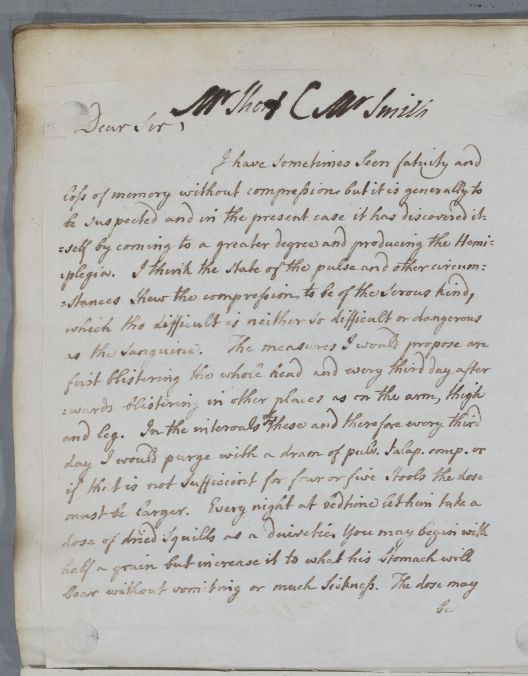 Mr Short C Mr Smith
Dear Sir,
I have sometimes seen fatuity and
loss of memory without compression but it is generally to
be suspected and in the present case it has discovered it=
=self by coming to a greater degree and producing the Hemi=
=plegia. I think the state of the pulse and other circum=
=stances shew the compression to be of the serous kind,
which tho difficult is neither so difficult or dangerous
as the sanguine. The measures I would propose are
first blistering the whole head and every third day after
=wards blistering in other places as on the arm, thigh
and leg. In the intervals of these and therefore every third
day I would purge with a dram of pulv. Jalap. comp. or
if that is not sufficient for four or five stools the dose
must be larger. Every night at bedtime let him take a
dose of dried Squills as a diuretic. You may begin with
half a grain but increase it to what his stomach will
bear without vomiting or much sickness. The dose may
be